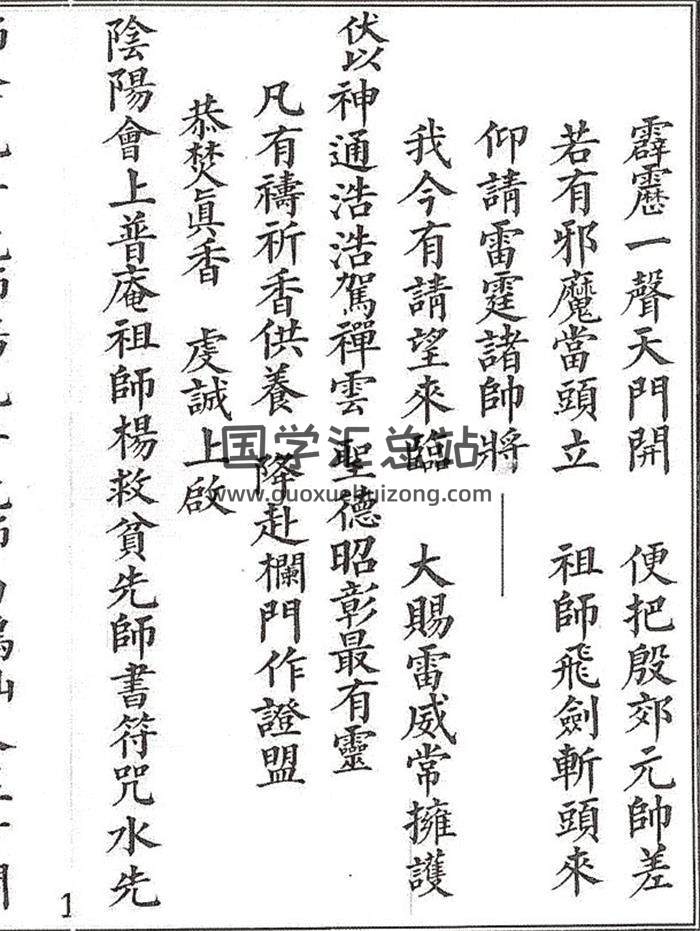 霹靂一聲天門開　便把殷郊元帥差
若有邪魔當頭立　祖師飛劍斬頭來
仰請雷霆諸帥將
我今有請望來臨　大賜雷威常擁護
伏以神通浩浩駕禪雲　聖德昭彰最有靈
凡有禱祈香供養　降赴欄門作證盟
恭焚眞香　虔誠上啟
陰陽會上普庵祖師楊救貧先師書符咒水先
1
国学汇总站
www.guoxuehuizong.com